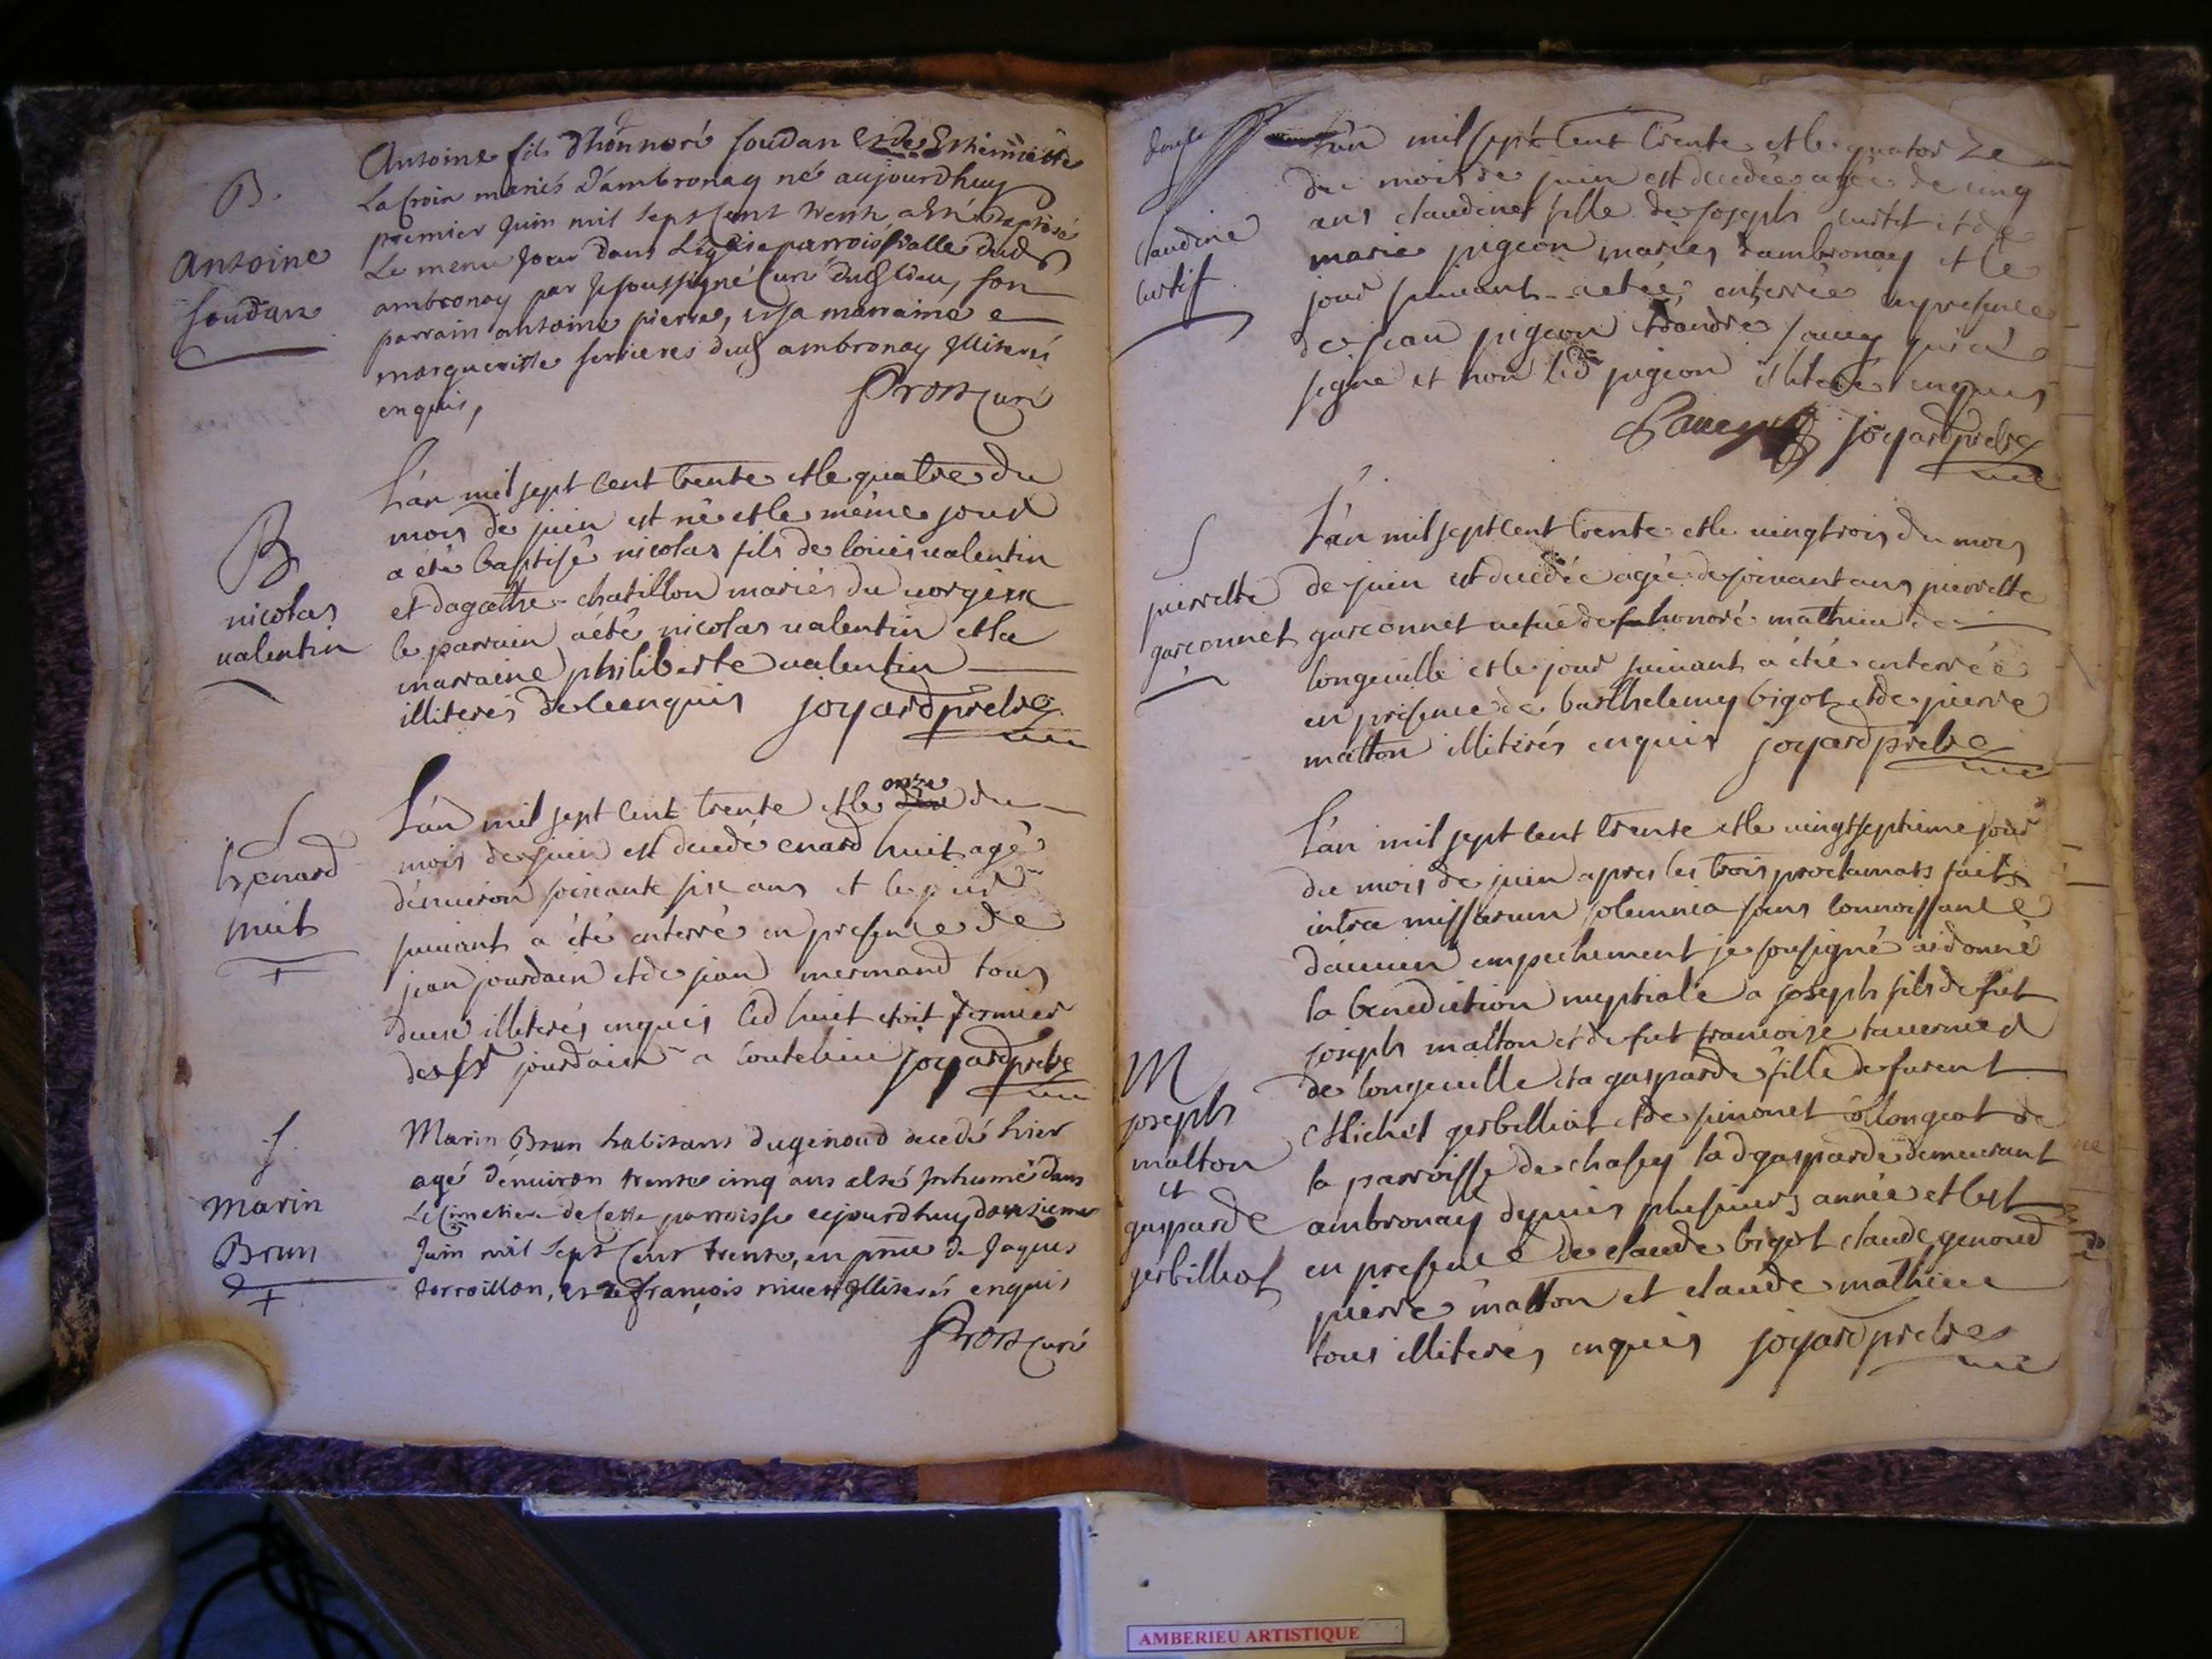 B.
Antoine
soudan
Antoine fils d'honnoré soudan et de Esthiennette
La Croix mariés d'ambronay né aujourdhuy
premier Juin mil sept cent trente a esté baptisé
Le meme jour dans L'eglise parroissialle dud
ambronay par Je soussigné Curé dud lieu, son
parrain antoine pierre, et sa marraine
margueritte ferrieres dud ambronay Illiterés
enquis,
Prost Curé
B
nicolas
valentin
L'an mil sept cent trente et le quatre du
mois de juin est né et le même jour
a été baptisé nicolas fils de loüis valentin
et dagathe chatillon mariés du vorgein
le parrain a été nicolas valentin et la
marraine philiberte valentin
illiterés de ce enquis joyard prêtre
S
henard
huit
L'an mil sept cent trente et le onze du
mois de juin est decedé enard huit agé
d'environ soixante six ans et le jour
suivant a été enterré en presence de
jean jourdain et de jean mermand tous
deux illiterés enquis led huit etoit fermier
de sr jourdain a coutelieu joyard prêtre
S.
Marin
Brun
Marin Brun habitant du genoud decedé hier
agé d'environ trente cinq ans a esté Inhumé dans
Le Cimetiere de Cette parroisse cejourdhuy douzieme
Juin mil sept cent trente, en pnce de Jaques
terroillon, et de françois nivet Illiterés enquis
Prost Curé
double
claudine
curtit
L'an mil sept cent trente et le quatorze
du mois de juin est decedée agée de cinq
ans claudine fille de joseph curtit et de
marie pigeon mariés dambronay et le
jour suivant a eté enterrée en presence
de jean pigeon et dandré saucy qui a
signé et non led pigeon illiteré enquis
Saucy joyard prêtre
S
pierrette
garconnet
L'an mil sept cent trente et le vingtrois du mois
de juin est decedée agée de soixant ans pierrette
garconnet vefue de fu honoré mathieu de
longeuille et le jour suivant a été enterrée
en présence de barthelemy bigot et de pierre
matton illiterés enquis joyard prêtre
M
joseph
malton
et
gasparde
gerbilliat
L'an mil sept cent trente et le vingtseptieme jour
du mois de juin apres les trois proclamats faits
intra missarum solemnia sans connoissance
d'aucun empechement je sousigné ai donné
la benediction nuptiale a joseph fils de fut
joseph malton et de fut francoise tavernier
de longeuille et a gasparde fille de furent
Michel gerbilliat et de simonet collongeat de
la parroisse de chasey lad gasparde demeurant
ambronay depuis plusieurs année et cest
en presence de claude bigot claude genoud
pierre matton et claude mathieu
tous illiterés enquis joyard prêtre
AMBERIEU ARTISTIQUE